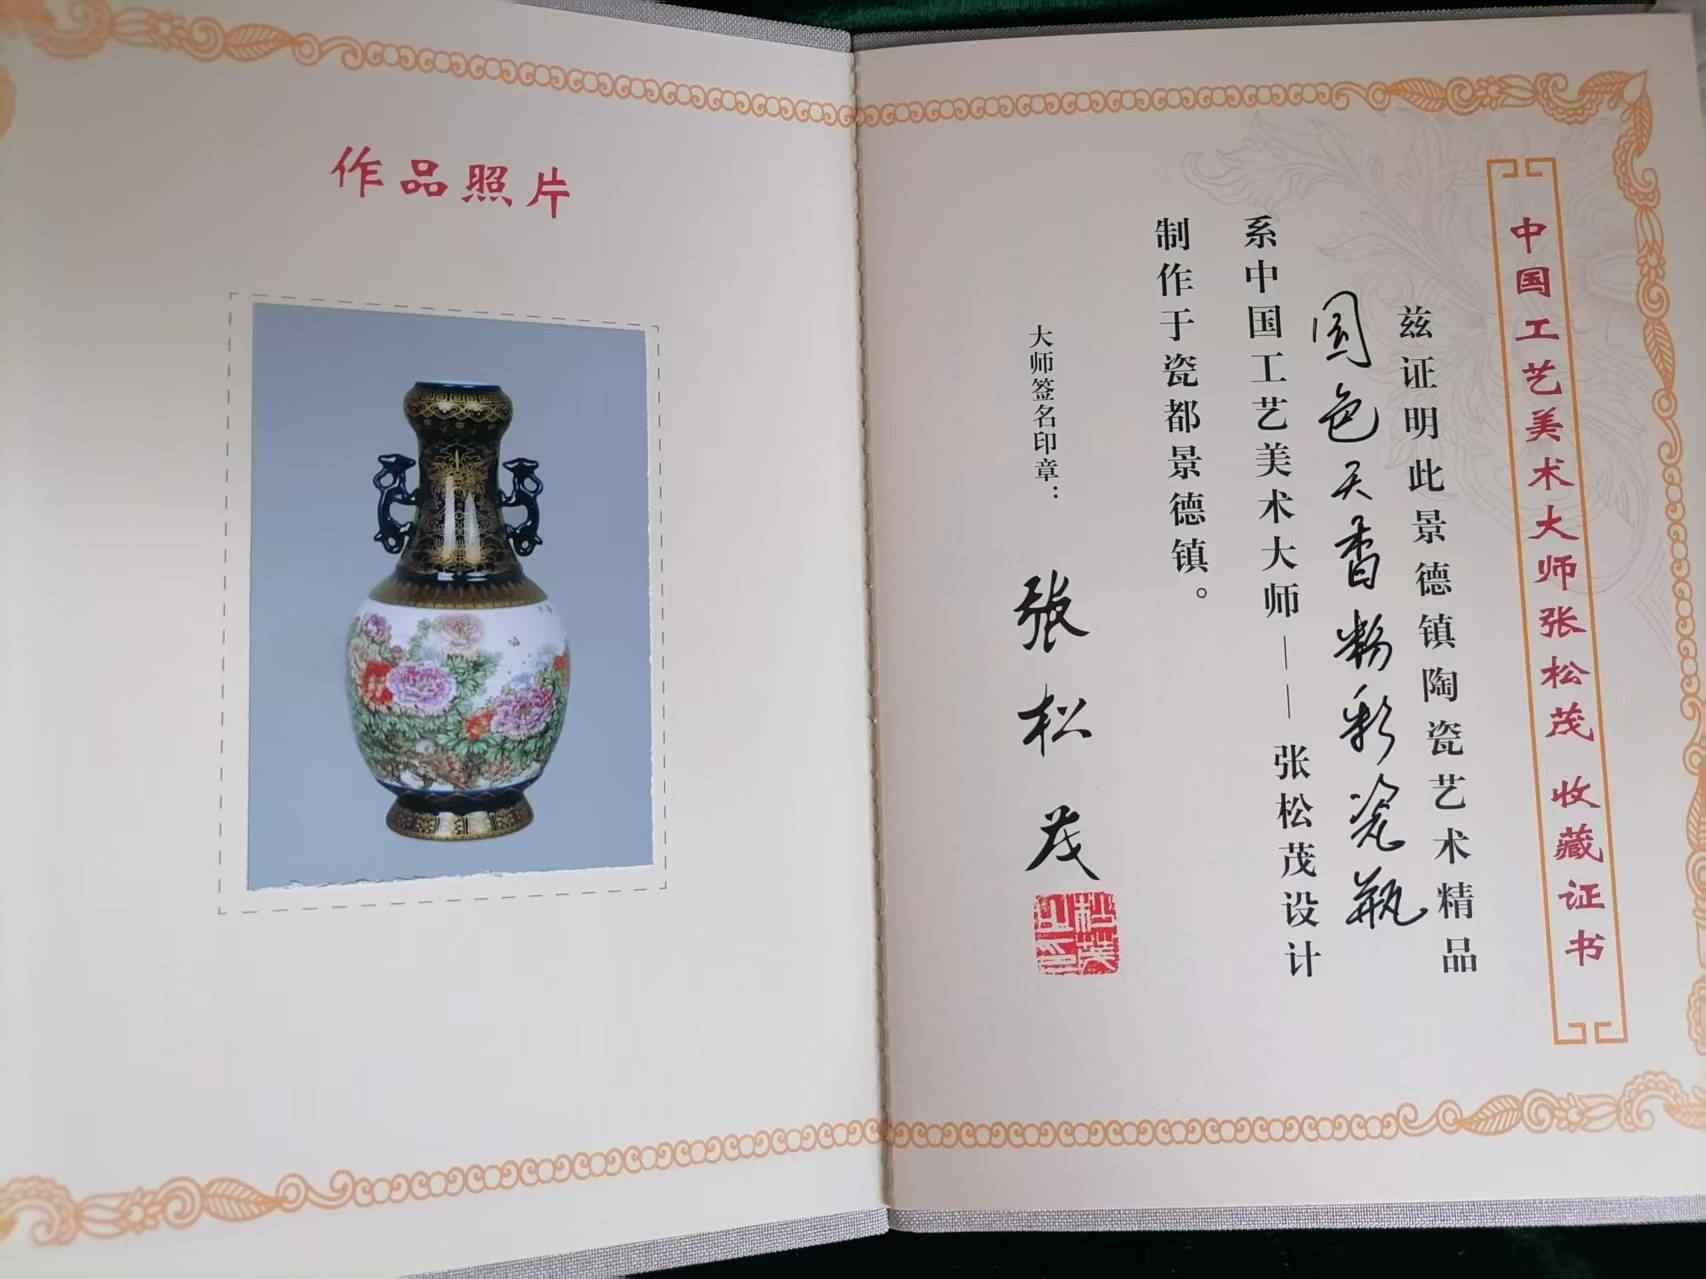 作品照片
中国工艺美术大师张松茂 收藏证书
兹证明此景德镇陶瓷艺术精品
国色天香粉彩瓷瓶
系中国工艺美术大师——张松茂设计
制作于瓷都景德镇。
大师签名印章：张松茂
松茂之印